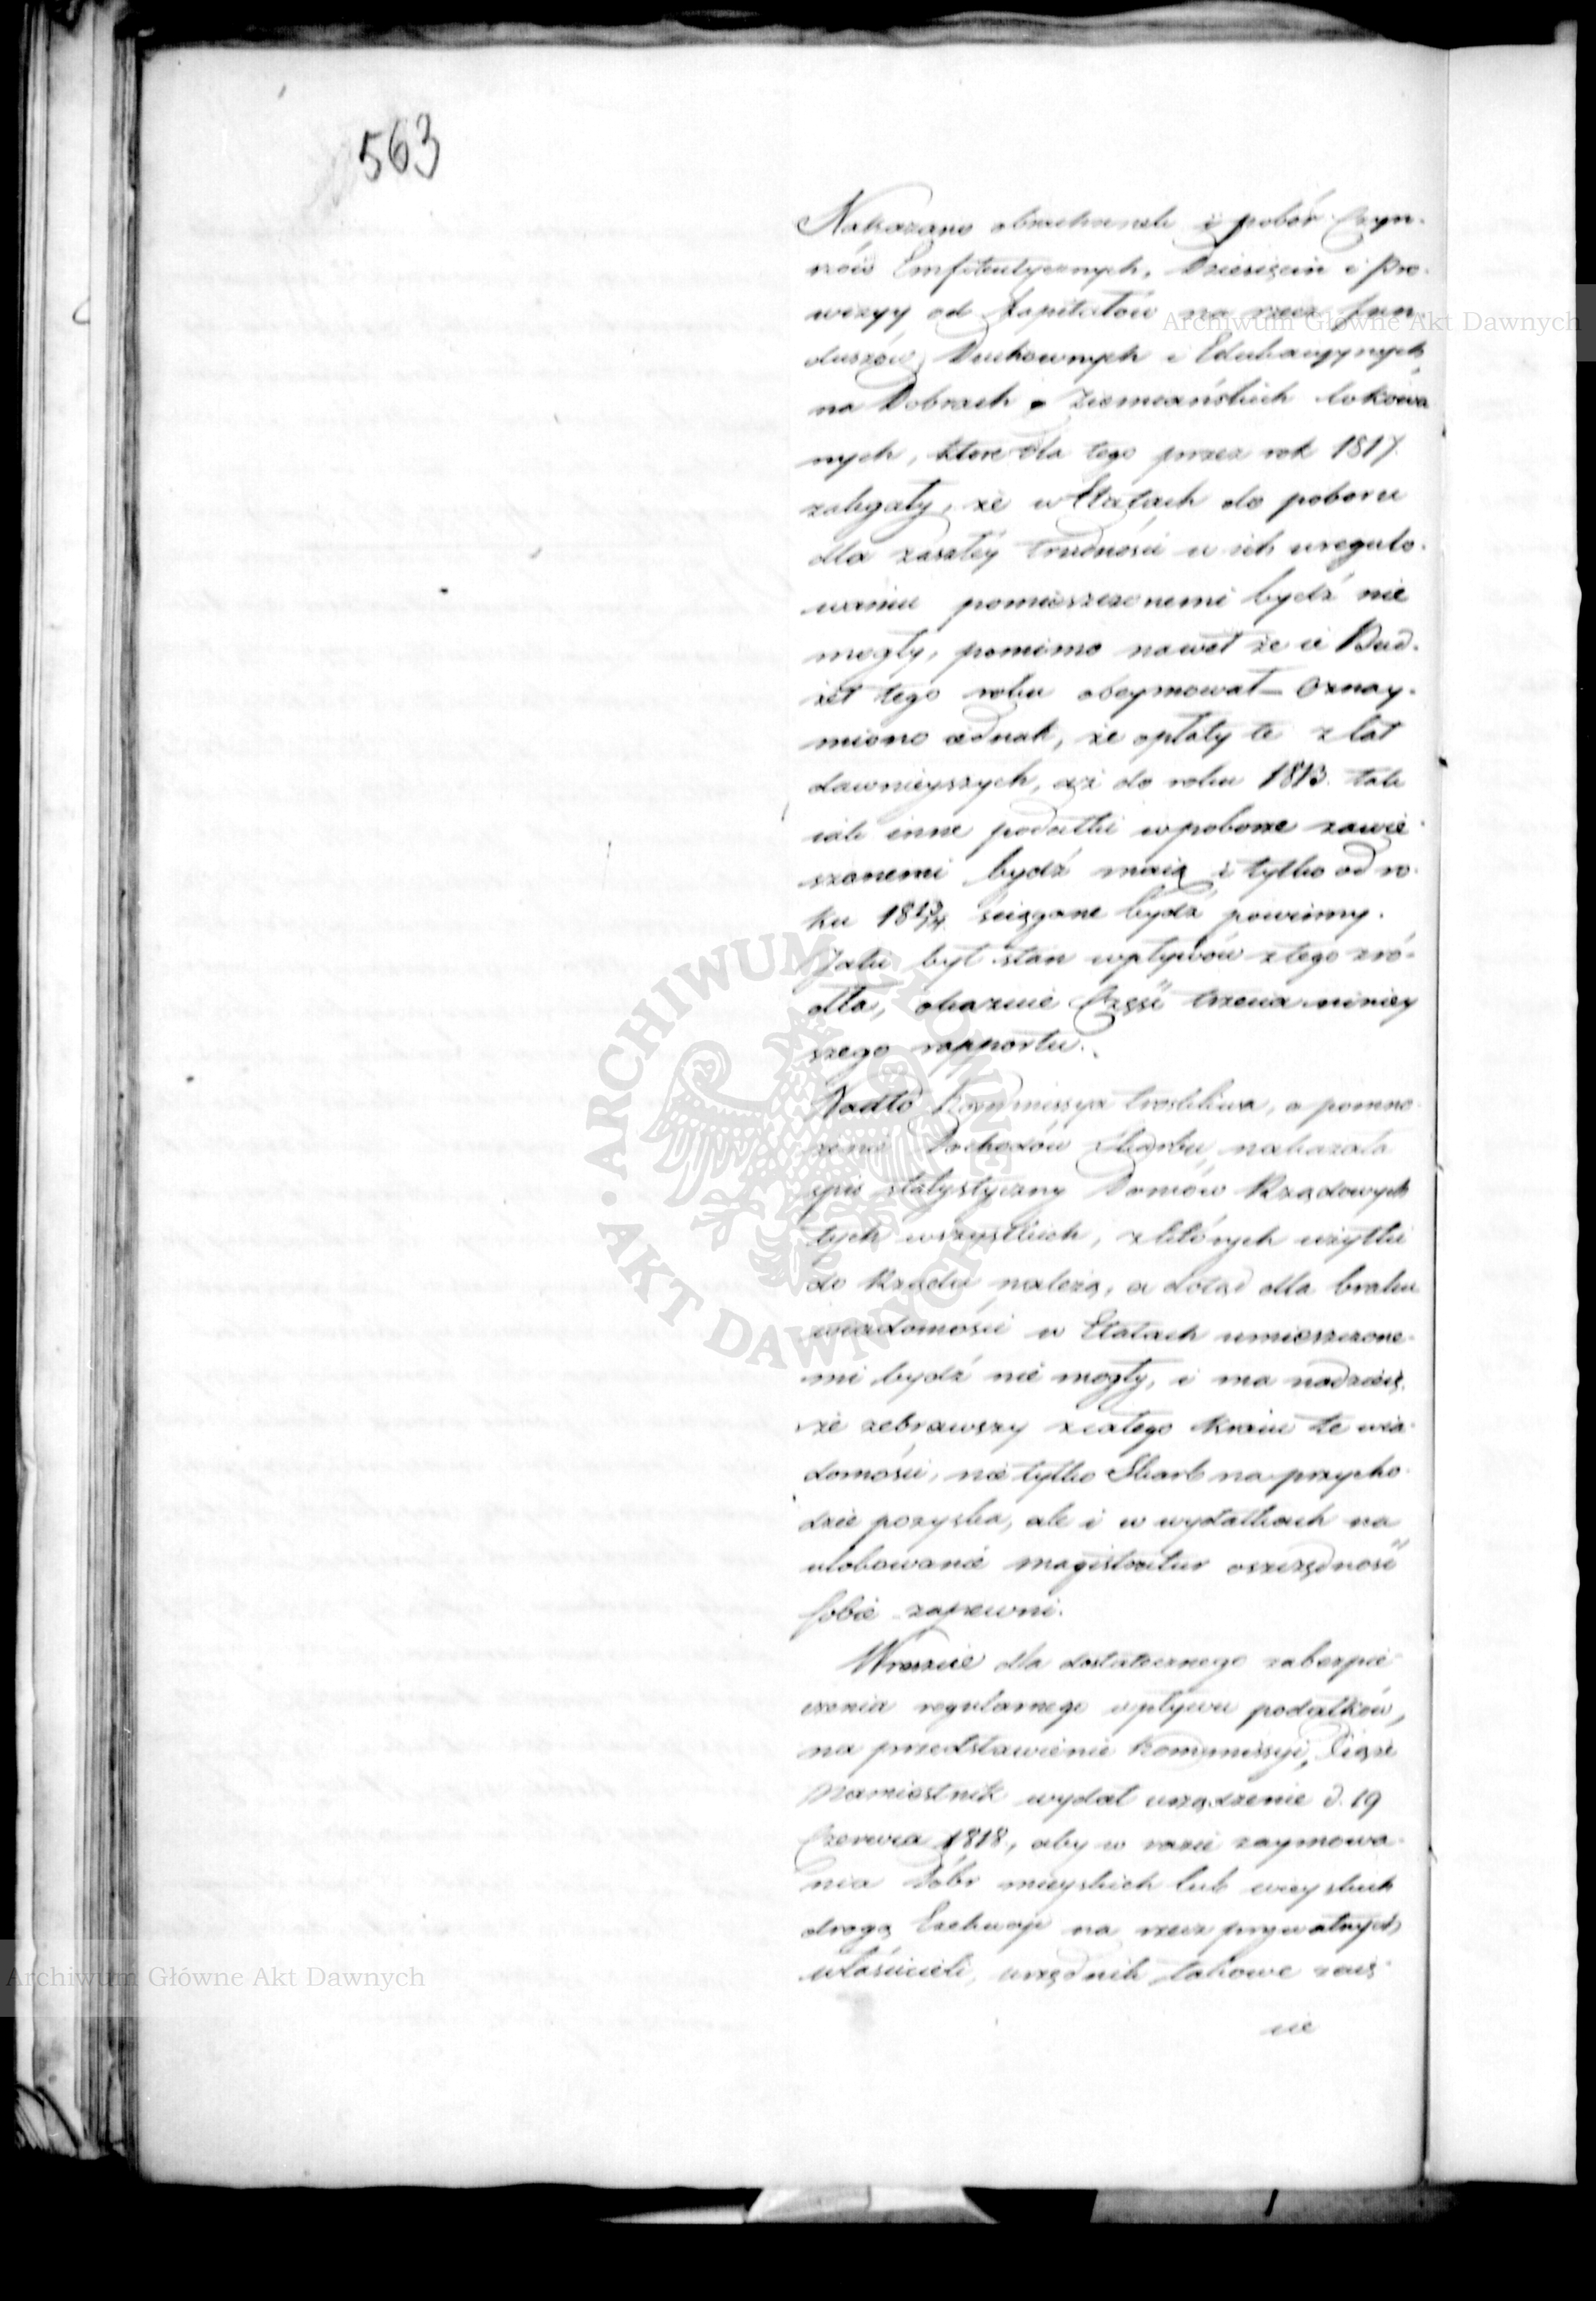 563
Nakazano obrachunek i pobór Czyn-
szów Emfiteutycznych, Dziesięcin i Pro-
wizyy od kapitałów na rzecz fun-
duszów Duchownych i Edukacyynych
na Dobrach Ziemiańskich lokowa
nych, które dla tego przez rok 1817.
zalegały, że w Etatach do poboru
dla zaszłey trudności w ich uregulo-
waniu pomieszczonemi bydź nie
mogły, pomimo nawet że ie Bud-
żet tego roku obeymował – Oznay-
miono iednak, że opłaty te z lat
dawnieyszych, aż do roku 1813. tak
iak inne podatki w poborze zawie-
szonemi bydź maią i tylko od ro-
ku 1813/14. ściągane bydź powinny.
Jaki był stan wpływów z tego źró-
dła, okazuie Część trzecia niniey
szego rapportu.
Nadto Kommissya troskliwa, o pomno-
żenie Dochodów Skarbu, nakazała
spis statystyczny Domów Rządowych
tych wszystkich, z których użytki
do Rządu należą, a dotąd dla braku
wiadomości w Etatach umieszczone-
mi bydź nie mogły, i ma nadzieię,
że zebrawszy z całego Kraiu te wia-
domości, nie tylko Skarb na przycho-
dzie pozyska, ale i w wydatkach na
ulokowanie magistratur oszczędność
sobie zapewni.
Wreszcie dla dostatecznego zabezpie-
czenia regularnego wpływu podatków,
na przedstawienie Kommissyi, Xiąże
Namiestnik wydał urządzenie d. 19
Czerwca 1818., aby w razie zaymowa-
nia Dóbr mieyskich lub wieyskich
drogą Exekucyi na rzecz prywatnych
właścicieli, urzędnik takowe zaię-
cie
Archiwum Główne Akt Dawnych
Archiwum Główne Akt Dawnych
ARCHIWUM GŁÓWNE AKT DAWNYCH